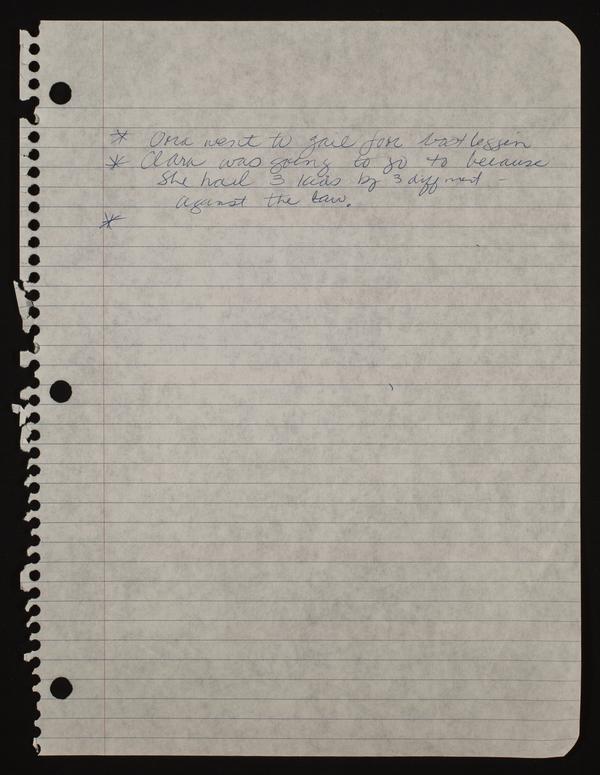 * Ora went to gail for bootleggin
* Clara was going to go to because
she had 3 kids by 3 diffment -
against the law.
*